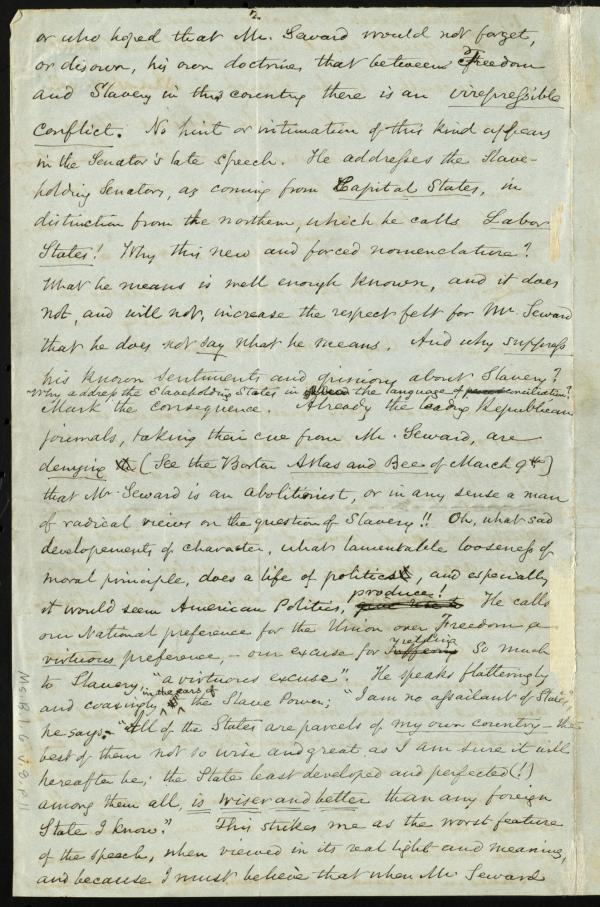 2.
or who hoped that Mr. Seward would not forget,
or disown, his own doctrine, that between Freedom
and Slavery in this country there is an irrepressible
conflict. No hint or intimation of this kind appears
in the Senator's late speech. He addresses the Slave-
holding Senators, as coming from Capital States, in
distinction from the northern, which he calls Labor
States! Why this new and forced nomenclature?
What he means is well enough known, and it does
not, and will not, increase the respect felt for Mr. Seward
that he does not say what he means. And why suppress
his known sentiments and opinions about Slavery?
Why address the Slaveholding States in the language of conciliation?
Mark the consequence. Already the leading Republican
journals, taking their cue from Mr. Seward, are
denying (See the Boston Atlas and Bee of March 9th)
that Mr. Seward is an abolitionist, or in any sense a man
of radical views on the question of Slavery!! Oh, what sad
developements of character, what lamentable looseness of
moral principle, does a life of politics, and especially
produce!
it would seem American Politics, He calls
our National preference for the Union over Freedom a
virtuous preference, – our excuse for yielding so much
to Slavery, "a virtuous excuse". He speaks flatteringly
in the ears of
and coaxingly the Slave Power; "I am no assailant of States,"
he says – "All of the States are parcels of my own country – the
best of them not so wise and great as I am sure it will
hereafter be; the States least developed and perfected (!)
among them all, is wiser and better than any foreign
State I know." This strikes me as the worst feature
of the speech, when viewed in its real light and meaning,
and because I must believe that when Mr. Seward
Ms.B.1.6 v.8 p.11